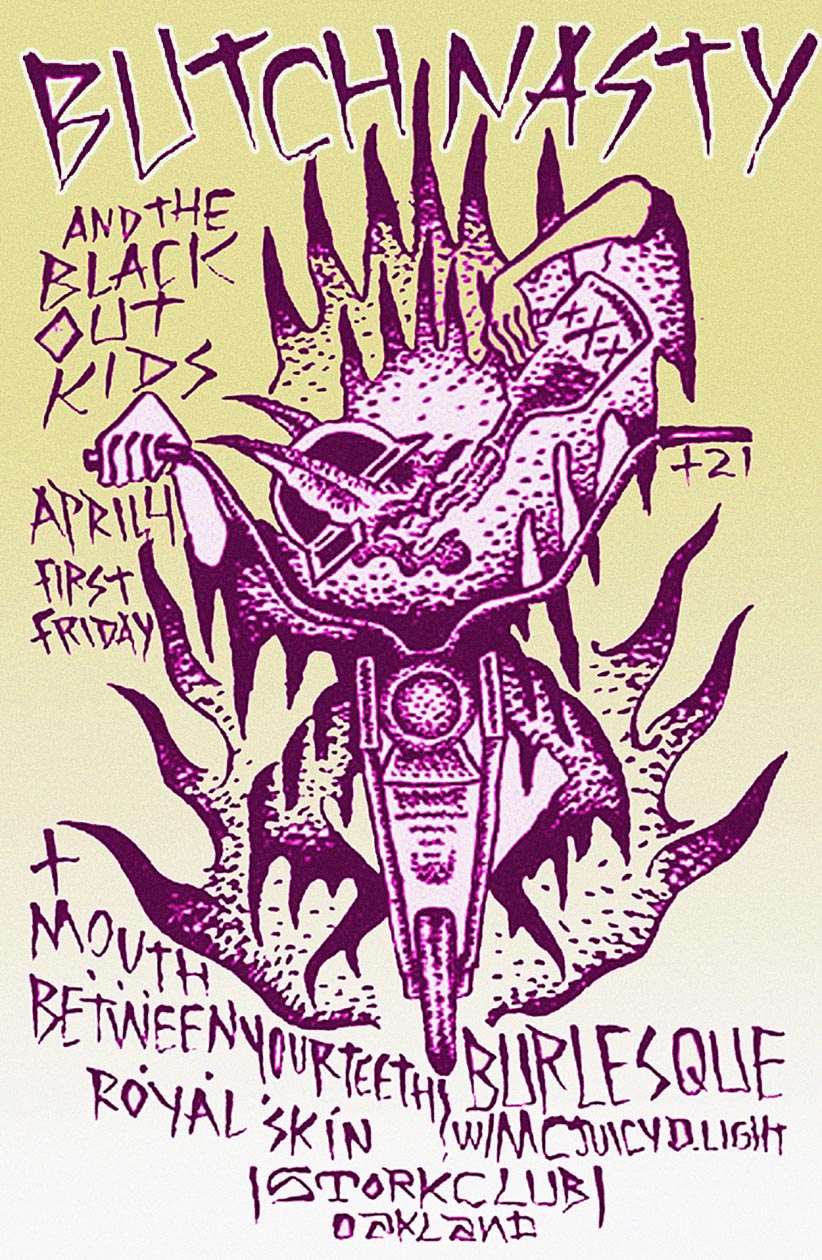 BUTCH NASTY
AND THE
BLACK
OUT
KIDS
XXX
+21
APRIL 4
FIRST
FRIDAY
+
MOUTH
BETWEEN YOUR TEETH
ROYAL SKIN
BURLESQUE
W/MC JUICY D. LIGHT
|STORK CLUB|
OAKLAND